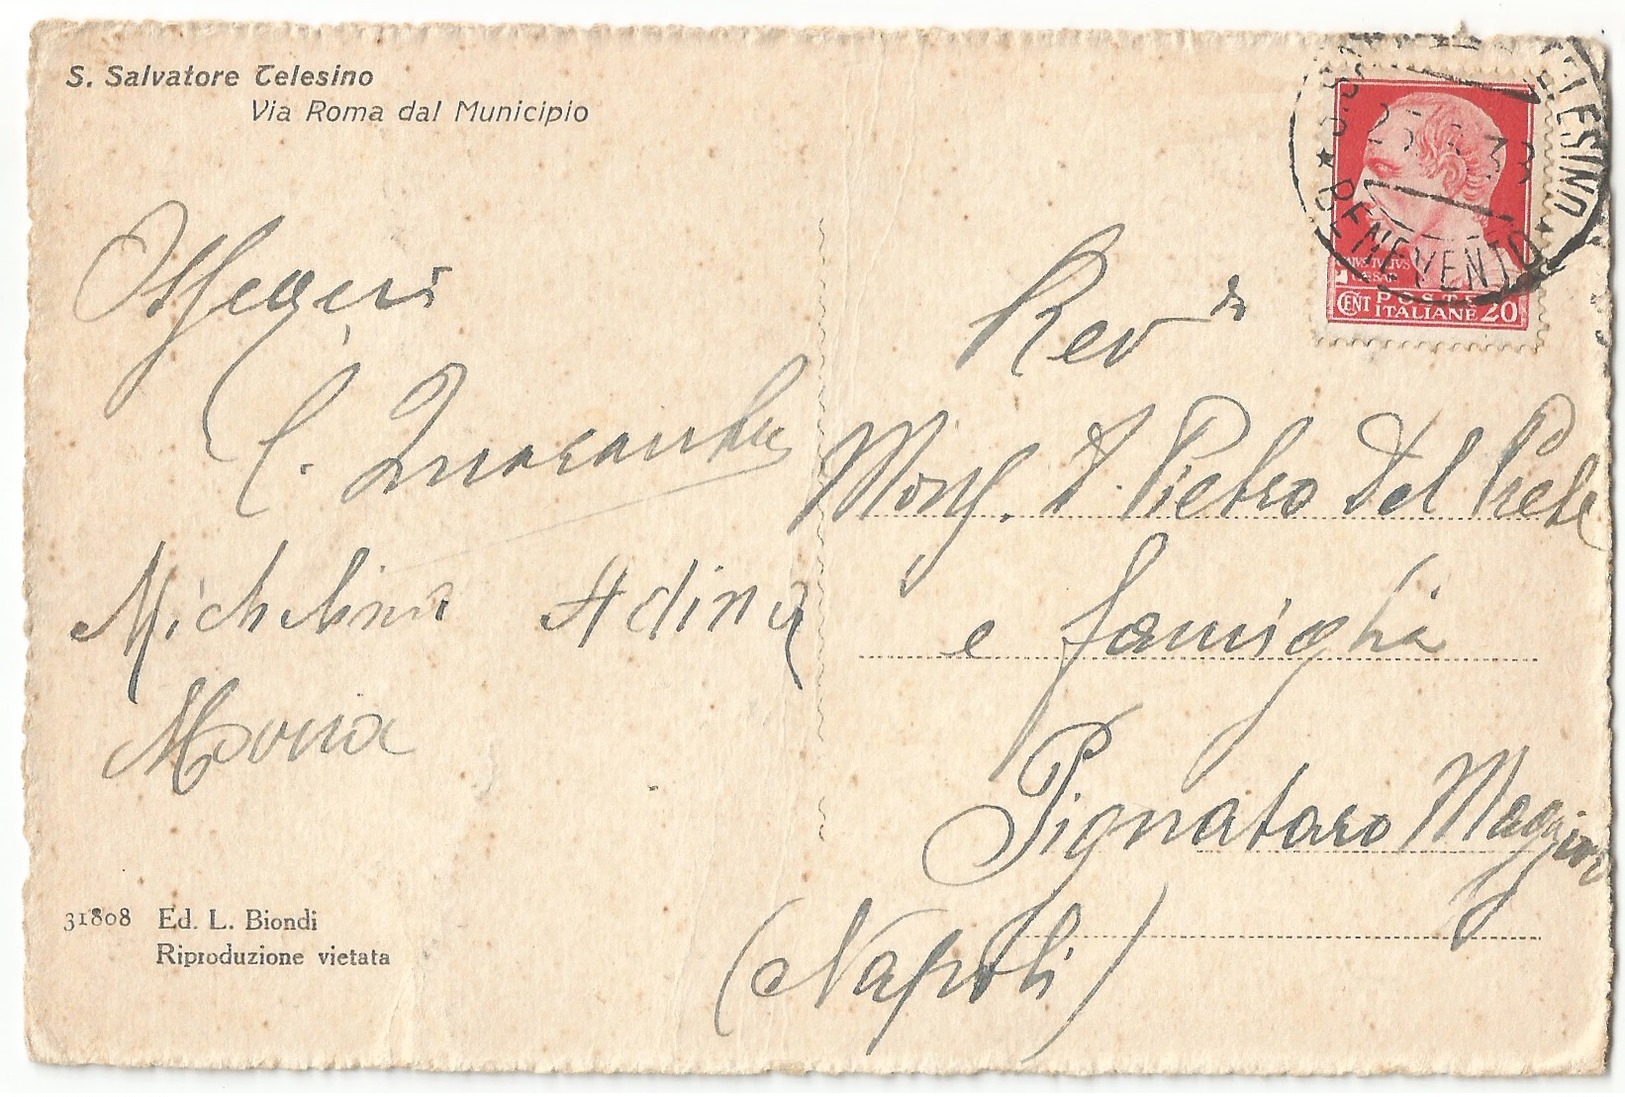 S. Salvatore Telesino
Via Roma dal Municipio
Ossequi
C.
Michelina Adina
Maria
31808 Ed. L. Biondi
Riproduzione vietata
TELESINO
25 38
* BENEVENTO *
CENT POSTE
ITALIANE 20
Rev
Mons. D. Pietro Del Prete
e famiglia
Pignataro Maggiore
(Napoli)